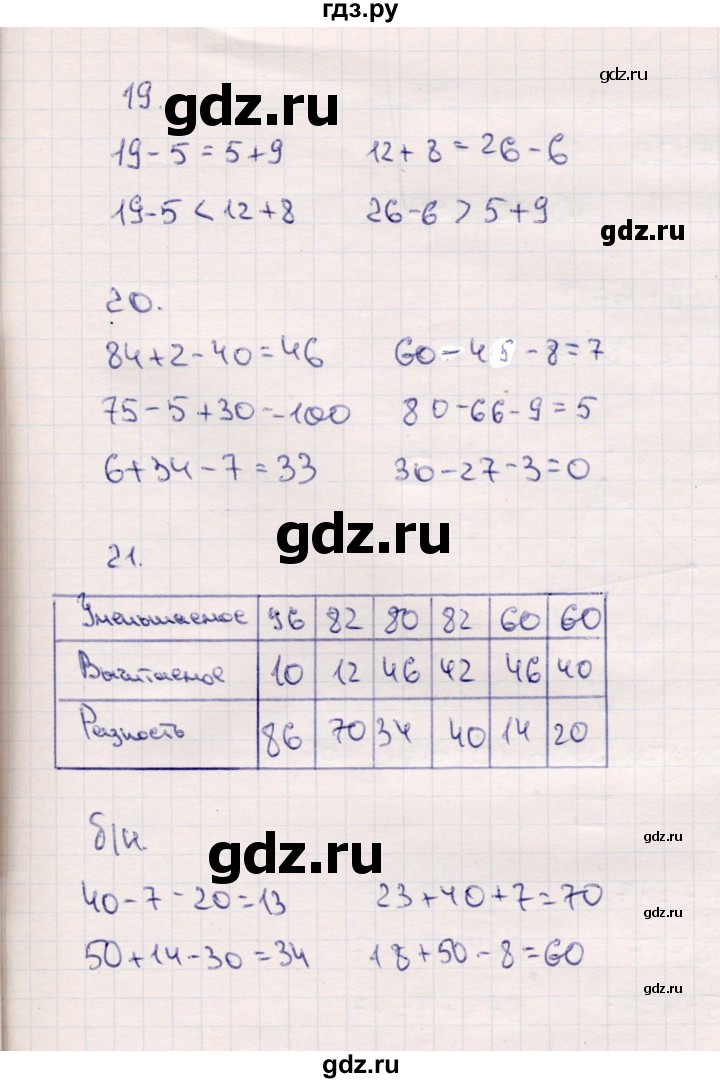 гдз.ру
19.
gdz.ru
gdz.ru
19-5=5+9 12+8=26-6
19-5<12+8 26-6>5+9
gdz.ru
20.
84+2-40=46 60-45-8=7
75-5+30-100 80-66-9=5
6+34-7=33 30-27-3=0
gdz.ru
21.
Уменьшаемое 96 82 80 82 60 60
Вычитаемое 10 12 46 42 46 40
Разность 86 70 34 40 14 20
б/н.
gdz.ru
gdz.ru
40-7-20=13 23+40+7=70
gdz.ru
50+14-30=34 18+50-8=60
gdz.ru
gdz.ru